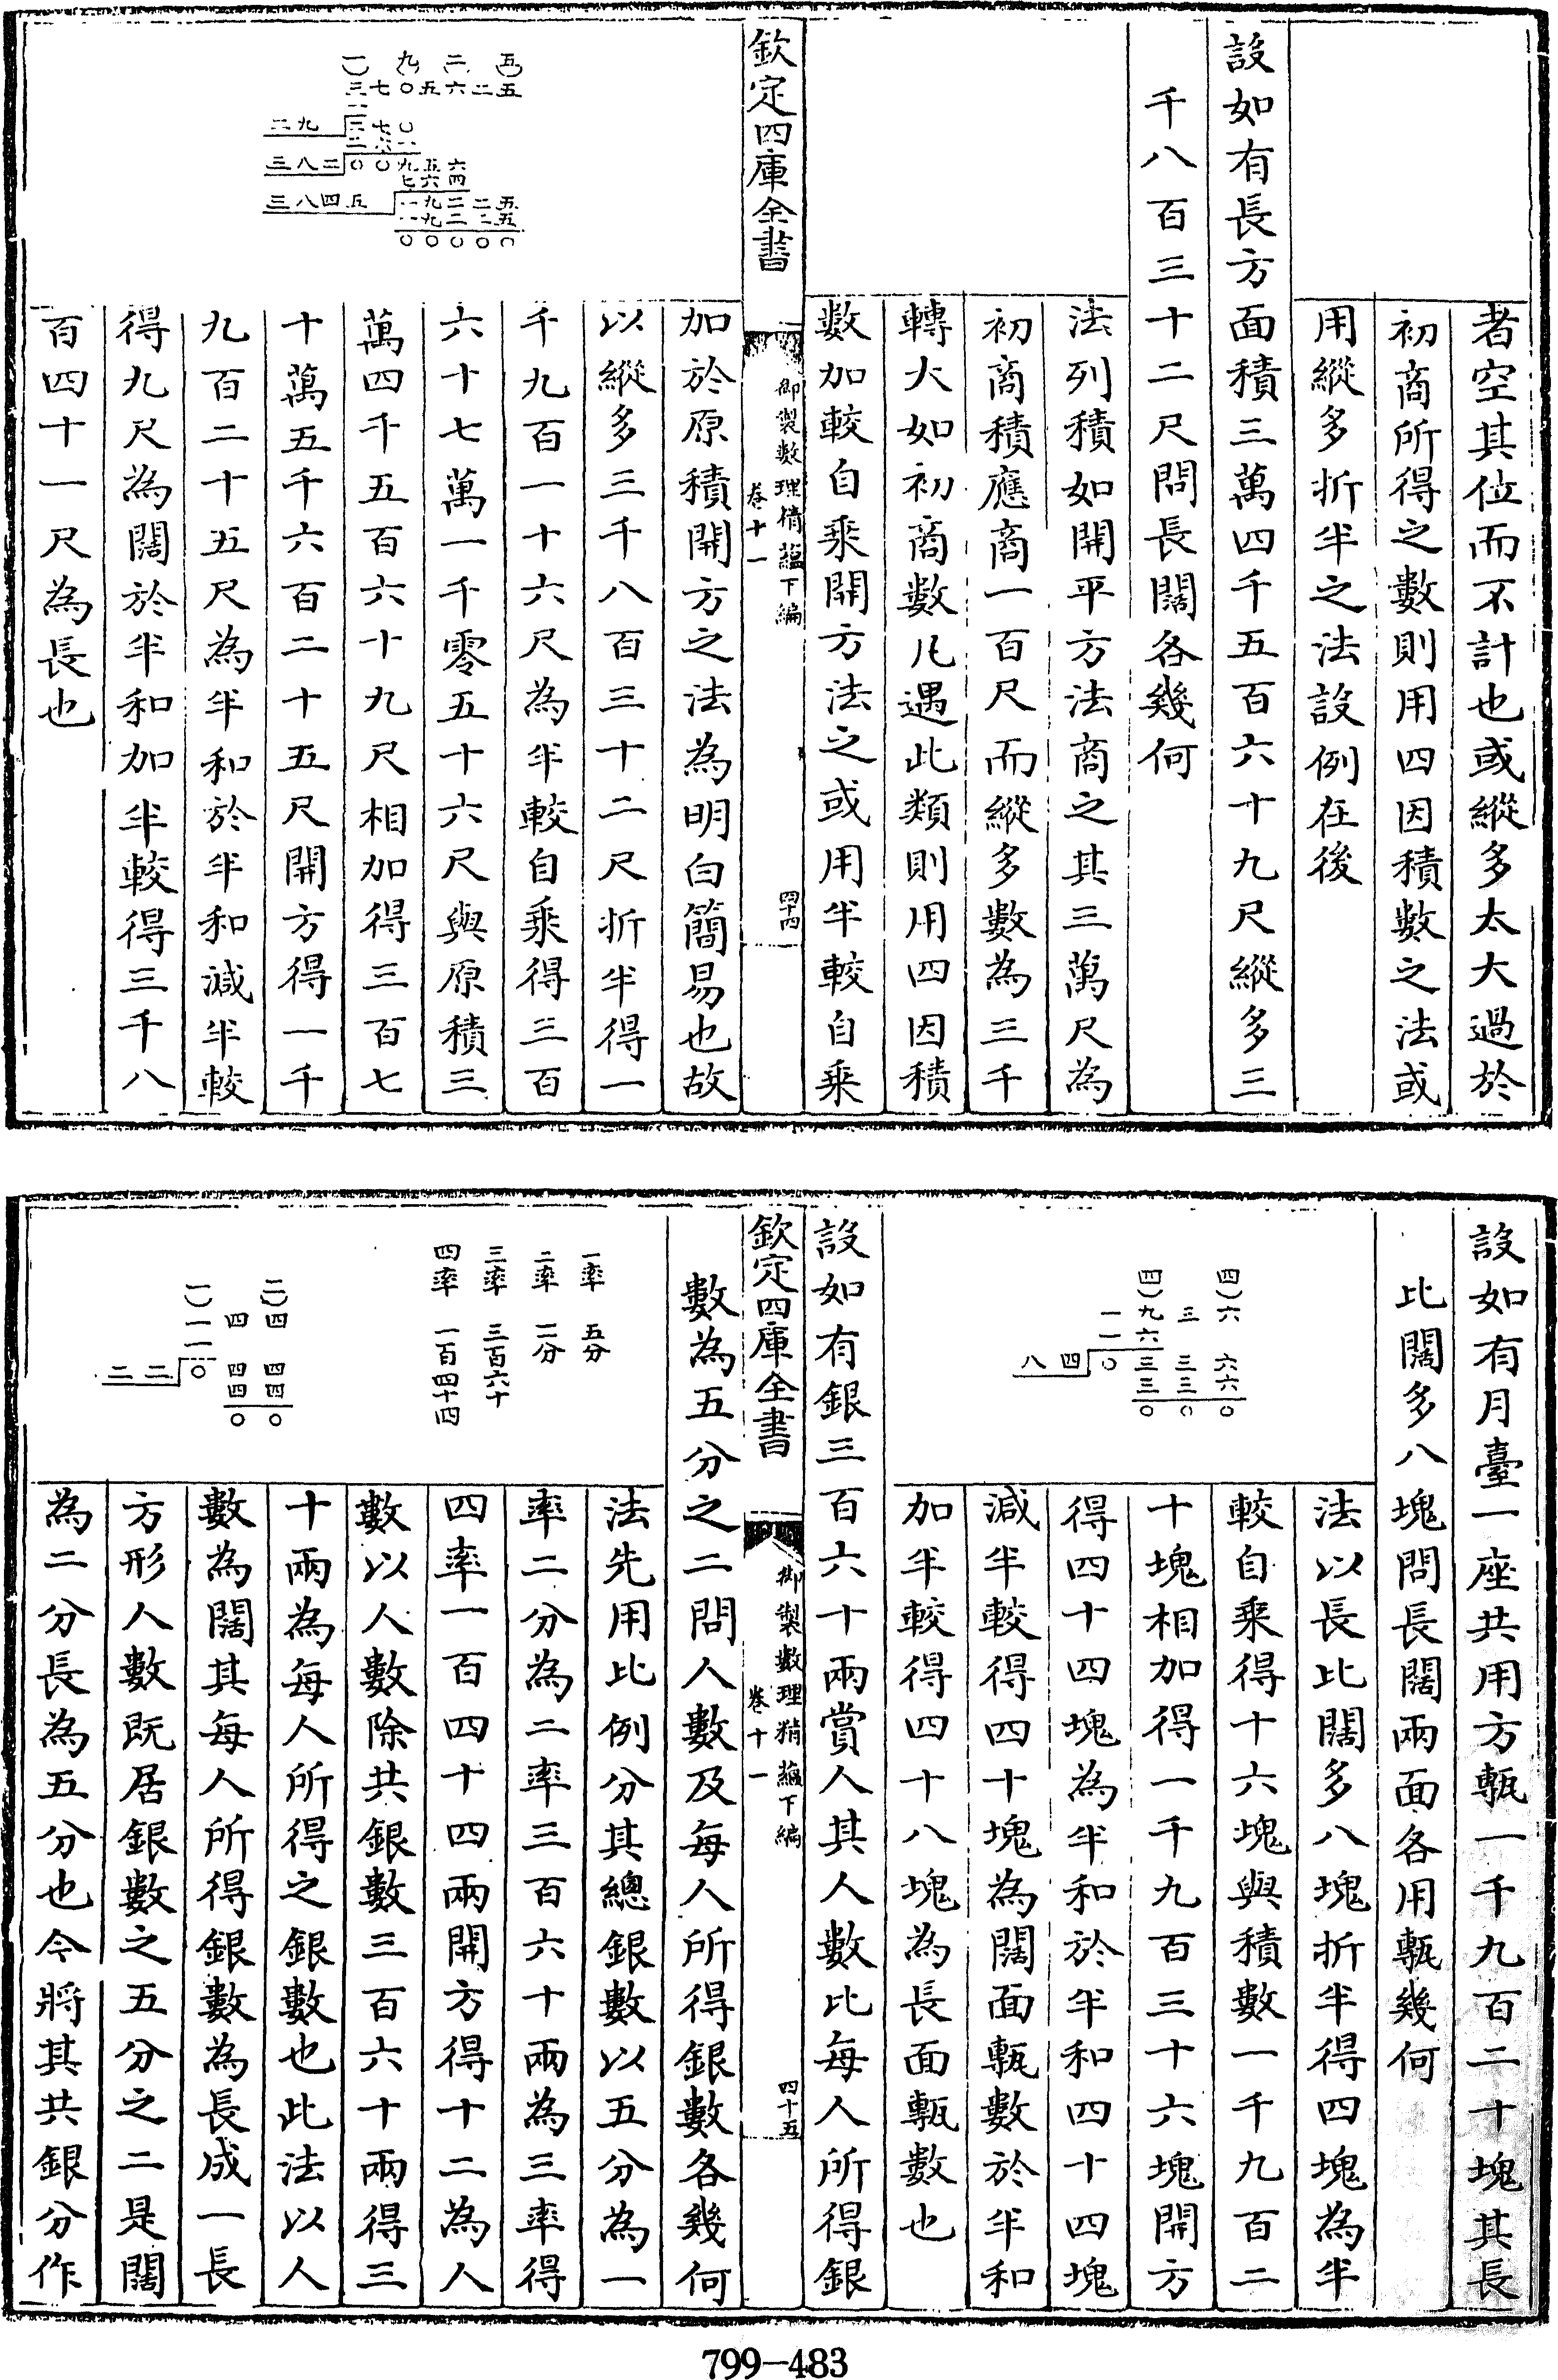 者空其位而不計也或縱多太大過於
初商所得之數則用四因積數之法或
用縱多折半之法設例在後
設如有長方面積三萬四千五百六十九尺縱多三
千八百三十二尺問長闊各幾何
法列積如開平方法商之其三萬尺為
初商積應商一百尺而縱多數為三千
轉大如初商數凡遇此類則用四因積
數加較自乘開方法之或用半較自乘
欽定四庫全書
御製數理精蘊下編
卷十一
四十四
加於原積開方之法為明白簡易也故
以縱多三千八百三十二尺折半得一
千九百一十六尺為半較自乘得三百
六十七萬一千零五十六尺與原積三
萬四千五百六十九尺相加得三百七
十萬五千六百二十五尺開方得一千
九百二十五尺為半和於半和減半較
得九尺為闊於半和加半較得三千八
百四十一尺為長也
一 九 二 五
三七〇五六二五
一
二九 二七〇
二六一
三八二 〇〇九五六
七六四
三八四五 一九二二五
一九二二五
〇〇〇〇〇
設如有月臺一座共用方甎一千九百二十塊其長
比闊多八塊問長闊兩面各用甎幾何
法以長比闊多八塊折半得四塊為半
較自乘得十六塊與積數一千九百二
十塊相加得一千九百三十六塊開方
得四十四塊為半和於半和四十四塊
減半較得四十塊為闊面甎數於半和
加半較得四十八塊為長面甎數也
四 四
一九三六
一六
八四 〇三三六
三三六
〇〇〇
設如有銀三百六十兩賞人其人數比每人所得銀
欽定四庫全書
御製數理精蘊下編
卷十一
四十五
數為五分之二問人數及每人所得銀數各幾何
法先用比例分其總銀數以五分為一
率二分為二率三百六十兩為三率得
四率一百四十四兩開方得十二為人
數以人數除共銀數三百六十兩得三
十兩為每人所得之銀數也此法以人
數為闊其每人所得銀數為長成一長
方形人數既居銀數之五分之二是闊
為二分長為五分也今將其共銀分作
一率 五分
二率 二分
三率 三百六十
四率 一百四十四
一 二
一四四
一
二二 〇四四
四四
〇〇
799-483